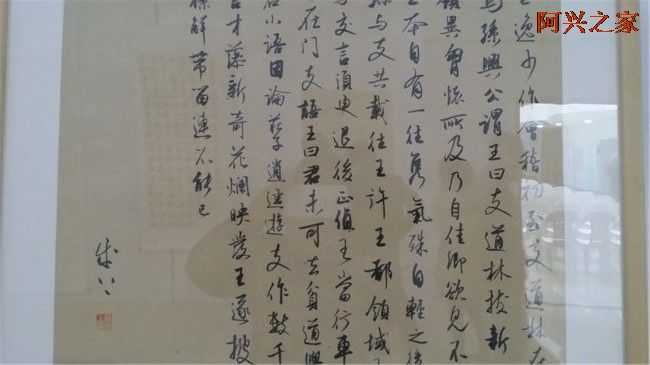 阿兴之家
逸少作會稽初至支道林在
焉孫興公謂王曰支道林拔新
領異胷懷所及乃自佳卿欲見不
王本自有一往雋氣殊自輕之後
孫與支共載往王許王都領域
與交言須臾退後正值王當行車
在門支語王曰君未可去貧道與
君小語因論莊逍遙遊支作數千
言才藻新奇花爛映發王遂披
襟解帶留連不能已